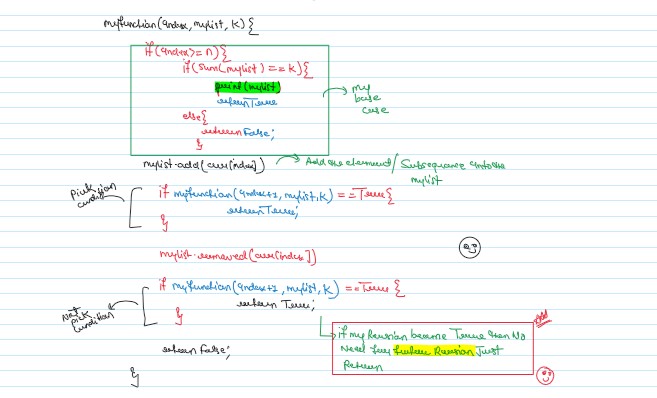 myfunction(index, mylist, k){
if(index>=n){
if(sum(mylist) == k){
print(mylist)
return True
else{
return False;
}
my
base
case
mylist.add(arr[index])
Add the element/Subsequence into the
mylist
Pick
condition
if myfunction(index+1, mylist, k) == True{
return True;
}
mylist.removed(arr[index])
if myfunction(index+1, mylist, k) == True {
return True;
}
Not
Pick
Condition
return False;
}
if my Recursion become True then No
Need for further Recursion Just
Return